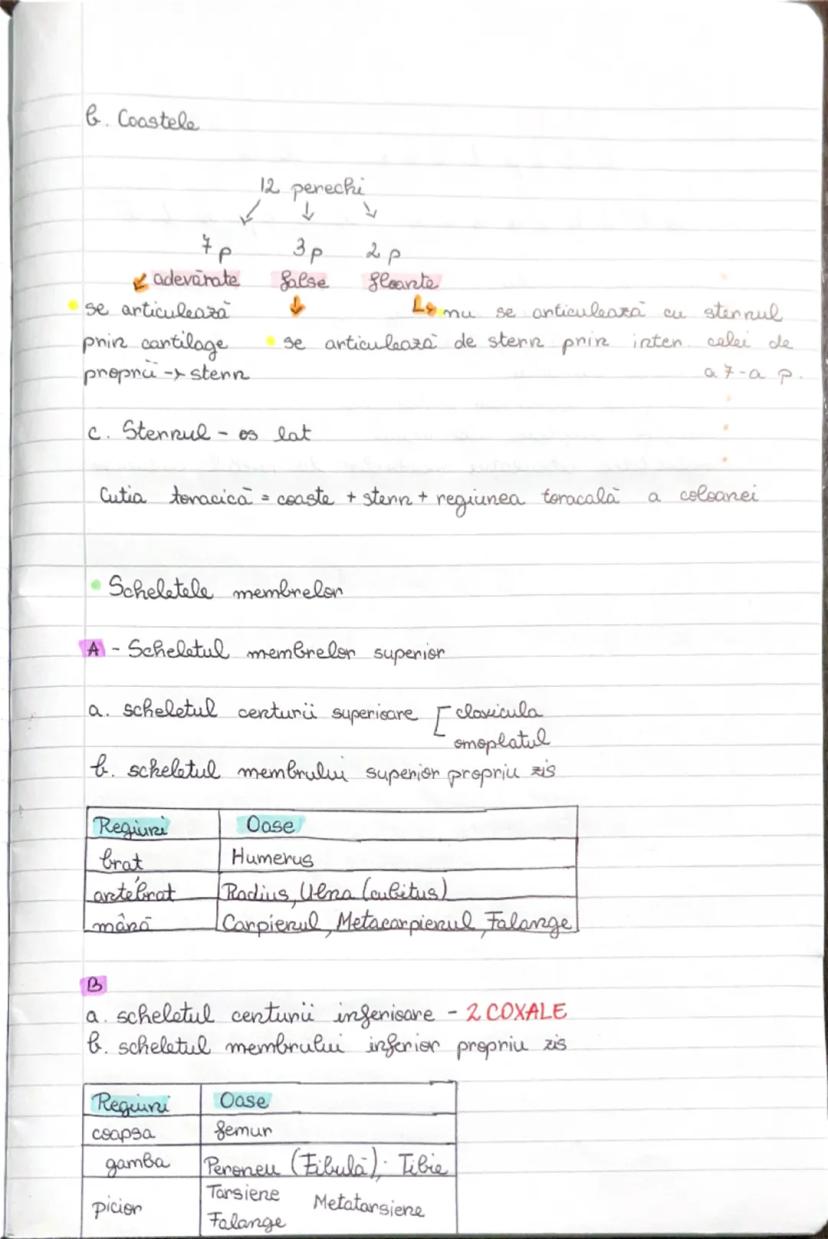 b. Coastele
12 perechi
↙ ↓ ↘
7p 3p 2p
adevărate false floante
se articulează nu se articulează cu sternul
prin cartilage se articulează de stern prin inter. celei de
proprii → stern a 7-a p.
c. Sternul - os lat
Cutia toracică = coaste + stern + regiunea toracală a coloanei
Scheletele membrelor
A - Scheletul membrelor superior
a. scheletul centurii superioare [ clavicula
omoplatul
b. scheletul membrului superior propriu zis
Regiuni Oase
brat Humerus
antebrat Radius, Ulna (cubitus)
mână Carpienul, Metacarpienul, Falange
B
a. scheletul centurii inferioare - 2 COXALE
b. scheletul membrului inferior propriu zis
Regiuni Oase
coapsa femur
gamba Peroneu (Fibulă); Tibie
picior Tarsiene Metatarsiene
Falange